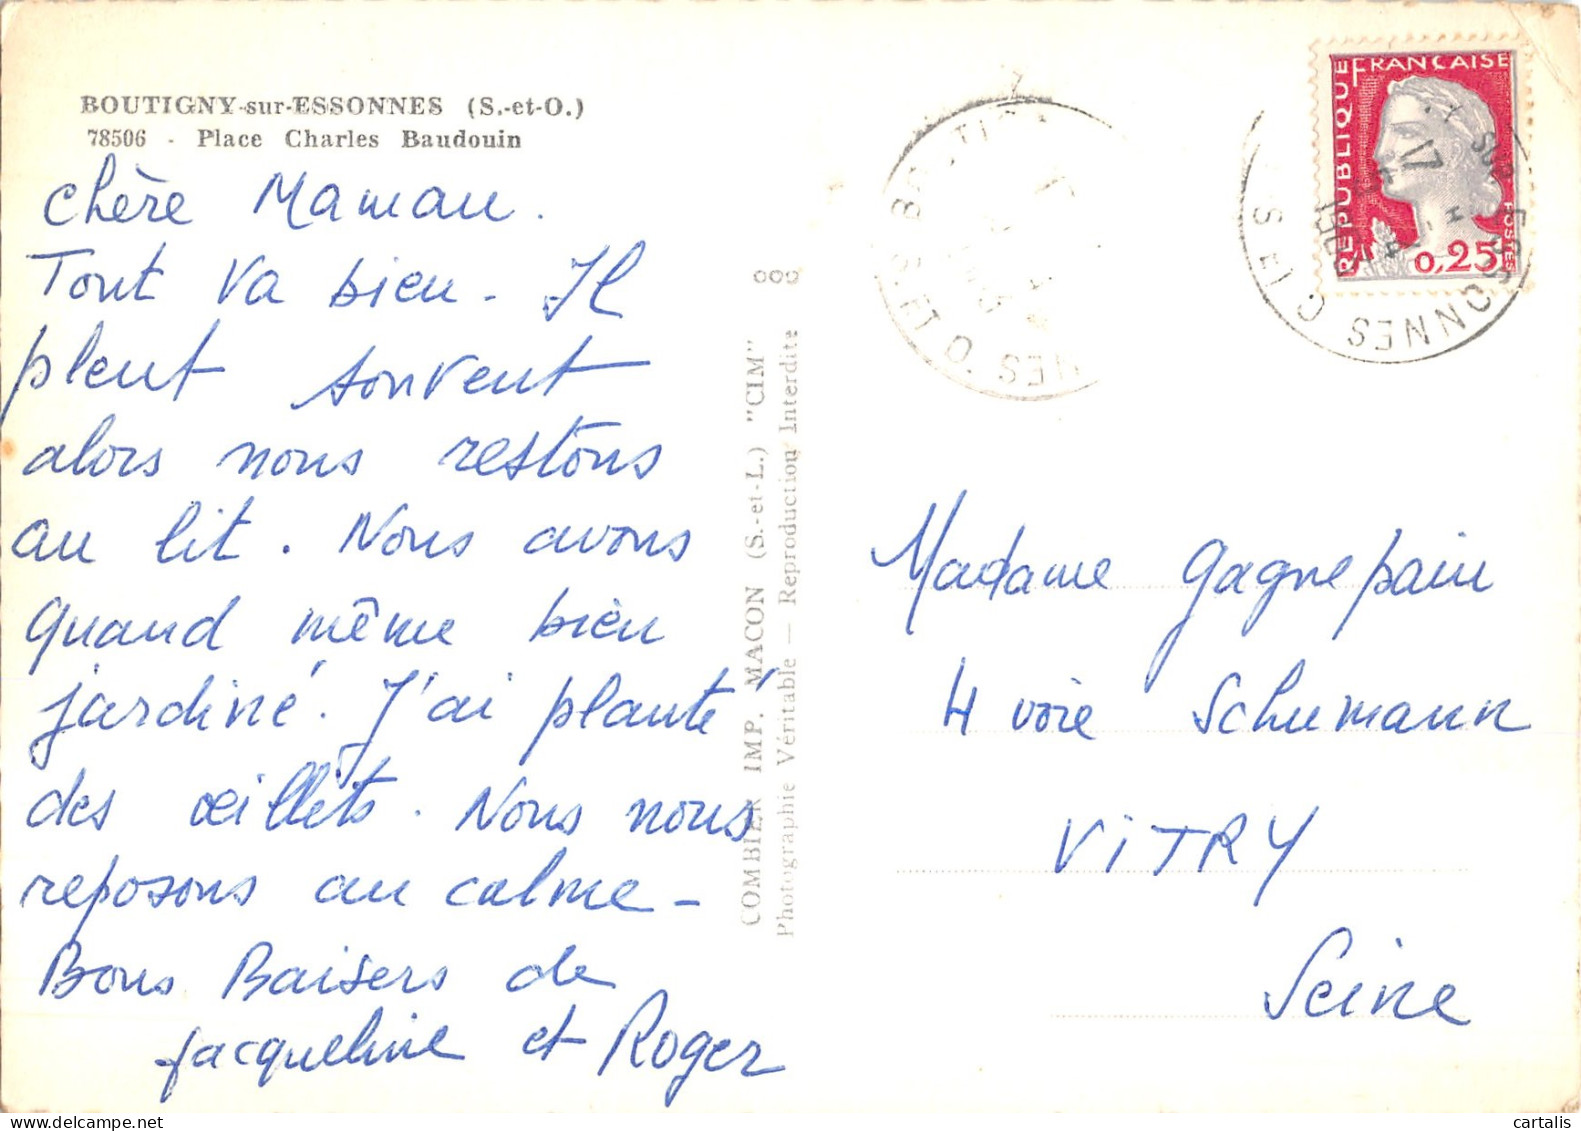 BOUTIGNY-sur-ESSONNES (S.-et-O.)
78506 - Place Charles Baudouin
Chère Maman.
Tout va bien. Il
pleut souvent
alors nous restons
au lit. Nous avons
quand même bien
jardiné. J'ai planté
des œillets. Nous nous
reposons au calme -
Bons Baisers de
Jacqueline et Roger
COMBIER IMP. MACON (S.-et-L.) "CIM"
Photographie Véritable — Reproduction Interdite
REPUBLIQUE FRANCAISE
POSTES
0,25
SUR ESSONNES
17
Madame Gagnepain
4 voie Schumann
VITRY
Seine
cartalis